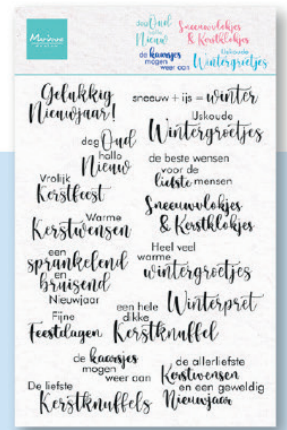 Marianne
DESIGN
dag Oud
hallo
Nieuw
de kaarsjes
mogen
weer aan
Sneeuwvlokjes
& Kerstklokjes
IJskoude
Wintergroetjes
Gelukkig
Nieuwjaar!
sneeuw + ijs = winter
IJskoude
Wintergroetjes
dag Oud
hallo
Nieuw
de beste wensen
voor de
liefste mensen
Vrolijk
Kerstfeest
Sneeuwvlokjes
& Kerstklokjes
Warme
Kerstwensen
Heel veel
warme
wintergroetjes
een
sprankelend
en
bruisend
Nieuwjaar
Winterpret
Fijne
Feestdagen
een hele
dikke
Kerstknuffel
de kaarsjes
mogen
weer aan
de allerliefste
Kerstwensen
en een geweldig
Nieuwjaar
De liefste
Kerstknuffels